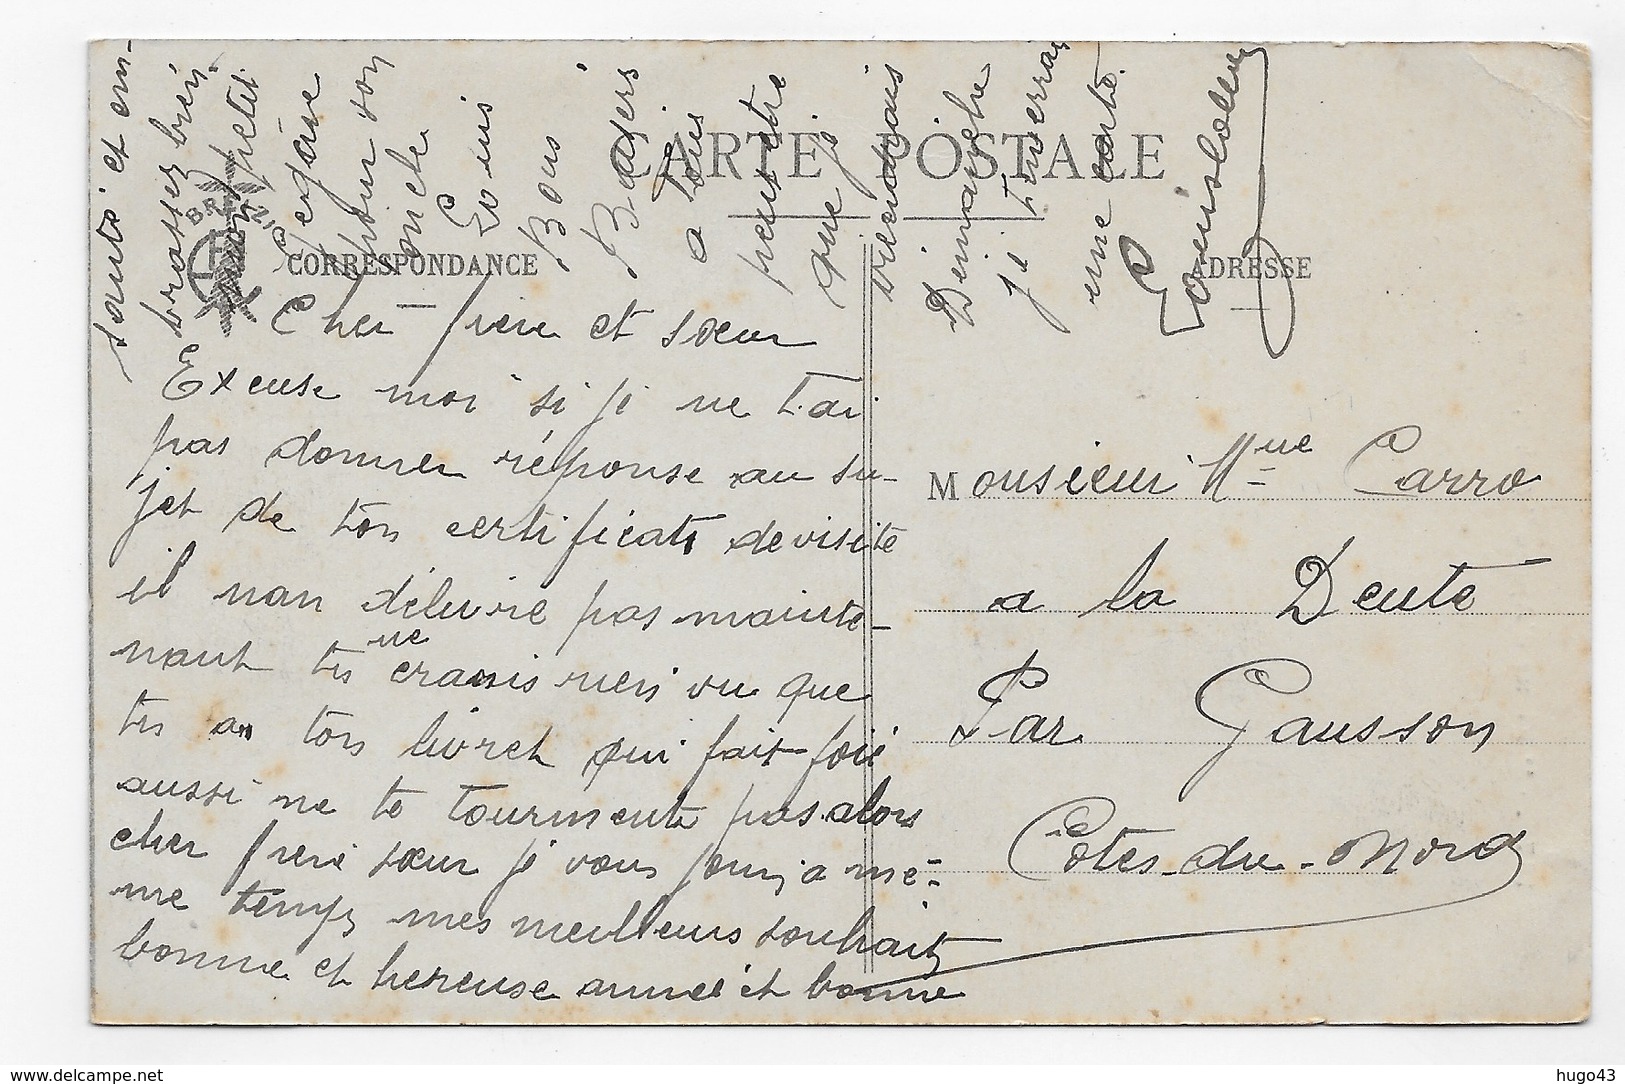 CARTE POSTALE
CORRESPONDANCE
ADRESSE
Cher frere et sœur
Excuse moi si je ne t.ai
pas donner réponse au su-
jet de ton certificat de visite
il nan délivre pas mainte-
nant tu ne crains rien vu que
tu as ton livret qui fait foie
aussi ne te tourmente pas alors
cher frere sœur je vous join a mê-
me temps mes meilleurs souhait
bonne et hereuse année et bonne
santé et em-
brassez bien
petit
pour son
oncle
Louis
Bons
Baisers
a Tous
peut etre
que je
viendrais
Dimanche
je t'inverrai
une carte.
Monsieur Mme Carro
a la Deute
Par Gausson
Côtes-du-Nord
hugo43